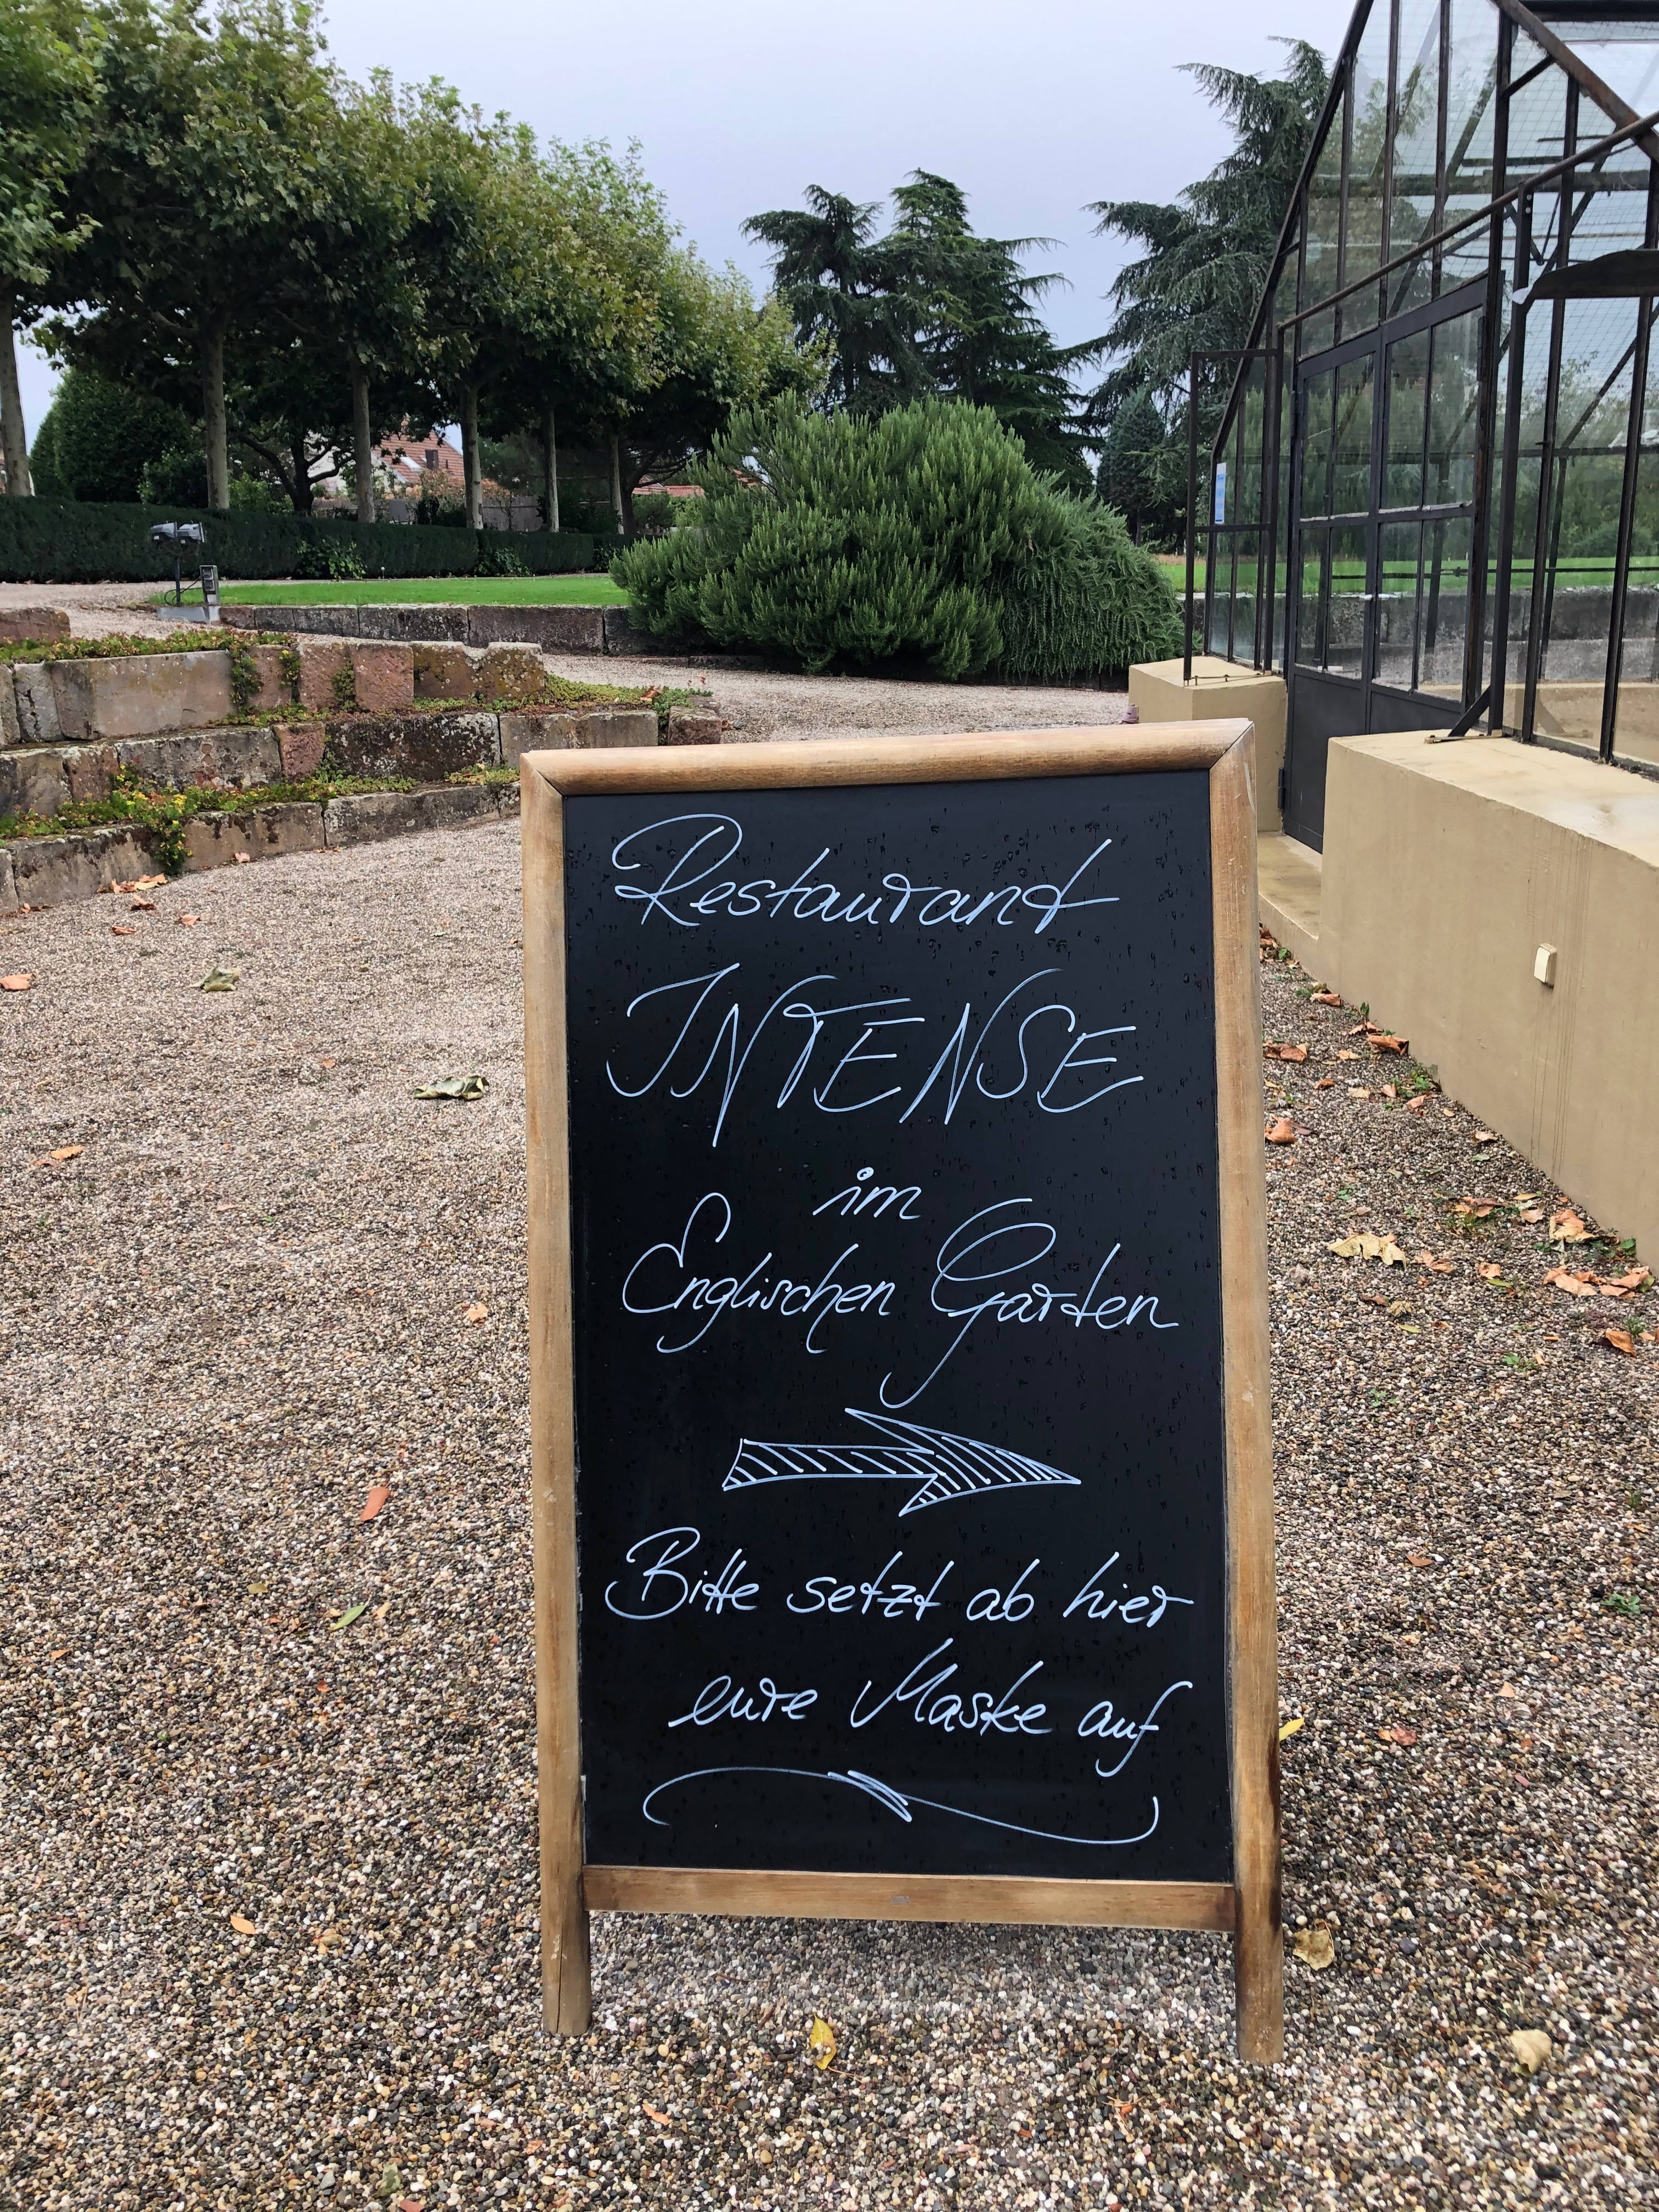 Restaurant
INTENSE
im
Englischen Garten
Bitte setzt ab hier
eure Maske auf